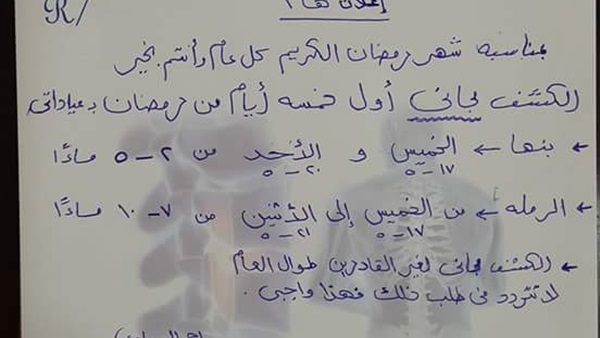 R/
إعلان هام
بمناسبه شهر رمضان الكريم كل عام وأنتم بخير
الكشف مجانى أول خمسه أيام من رمضان بعياداتى
← بنها ← الخميس و الأحد من ٢-٥ مساءًا
١٧-٥ ٢٠-٥
← الرمله ← من الخميس إلى الأثنين من ٧-١٠ مساءًا
١٧-٥ ٢١-٥
← الكشف مجانى لغير القادرين طوال العام
لا تتردد فى طلب ذلك فهذا واجبى .